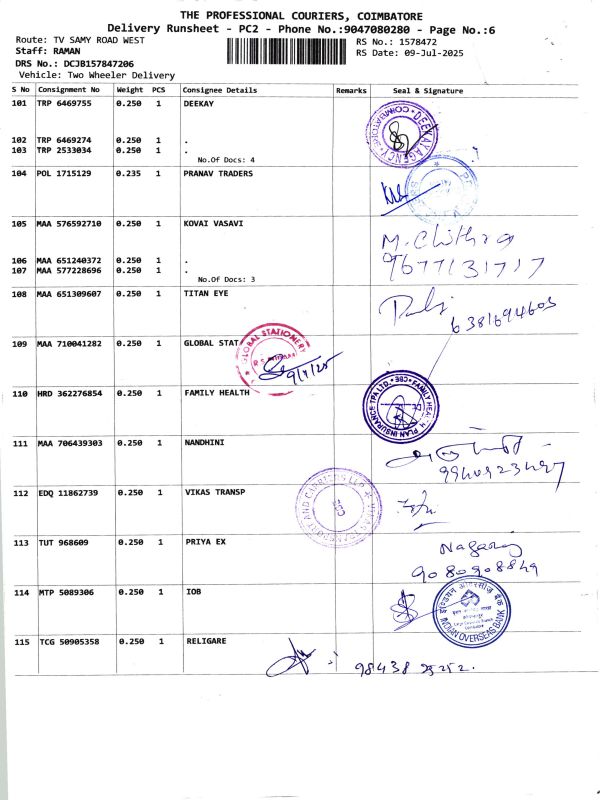 THE PROFESSIONAL COURIERS, COIMBATORE
Delivery Runsheet - PC2 - Phone No.:9047080280 - Page No.:6
Route: TV SAMY ROAD WEST
RS No.: 1578472
Staff: RAMAN
RS Date: 09-Jul-2025
DRS No.: DCJB157847206
Vehicle: Two Wheeler Delivery
S No Consignment No Weight PCS Consignee Details Remarks Seal & Signature
101 TRP 6469755 0.250 1 DEEKAY
DEEKAY AGENCY COIMBATORE
102 TRP 6469274 0.250 1 .
103 TRP 2533034 0.250 1 .
No.Of Docs: 4
104 POL 1715129 0.235 1 PRANAV TRADERS
105 MAA 576592710 0.250 1 KOVAI VASAVI
M. Chithra
9677131717
106 MAA 651240372 0.250 1 .
107 MAA 577228696 0.250 1 .
No.Of Docs: 3
108 MAA 651309607 0.250 1 TITAN EYE
6381694603
109 MAA 710041282 0.250 1 GLOBAL STAT
GLOBAL STATIONERY
9/7/25
110 HRD 362276854 0.250 1 FAMILY HEALTH
FAMILY HEALTH PLAN INSURANCE TPA LTD. CBE
111 MAA 706439303 0.250 1 NANDHINI
112 EDQ 11862739 0.250 1 VIKAS TRANSP
AND CARRIERS LLP
113 TUT 968609 0.250 1 PRIYA EX
Nagaraj
9080908849
114 MTP 5089306 0.250 1 IOB
इण्डियन ओवरसीज़ बैंक
INDIAN OVERSEAS BANK
115 TCG 50905358 0.250 1 RELIGARE
98438 25252.